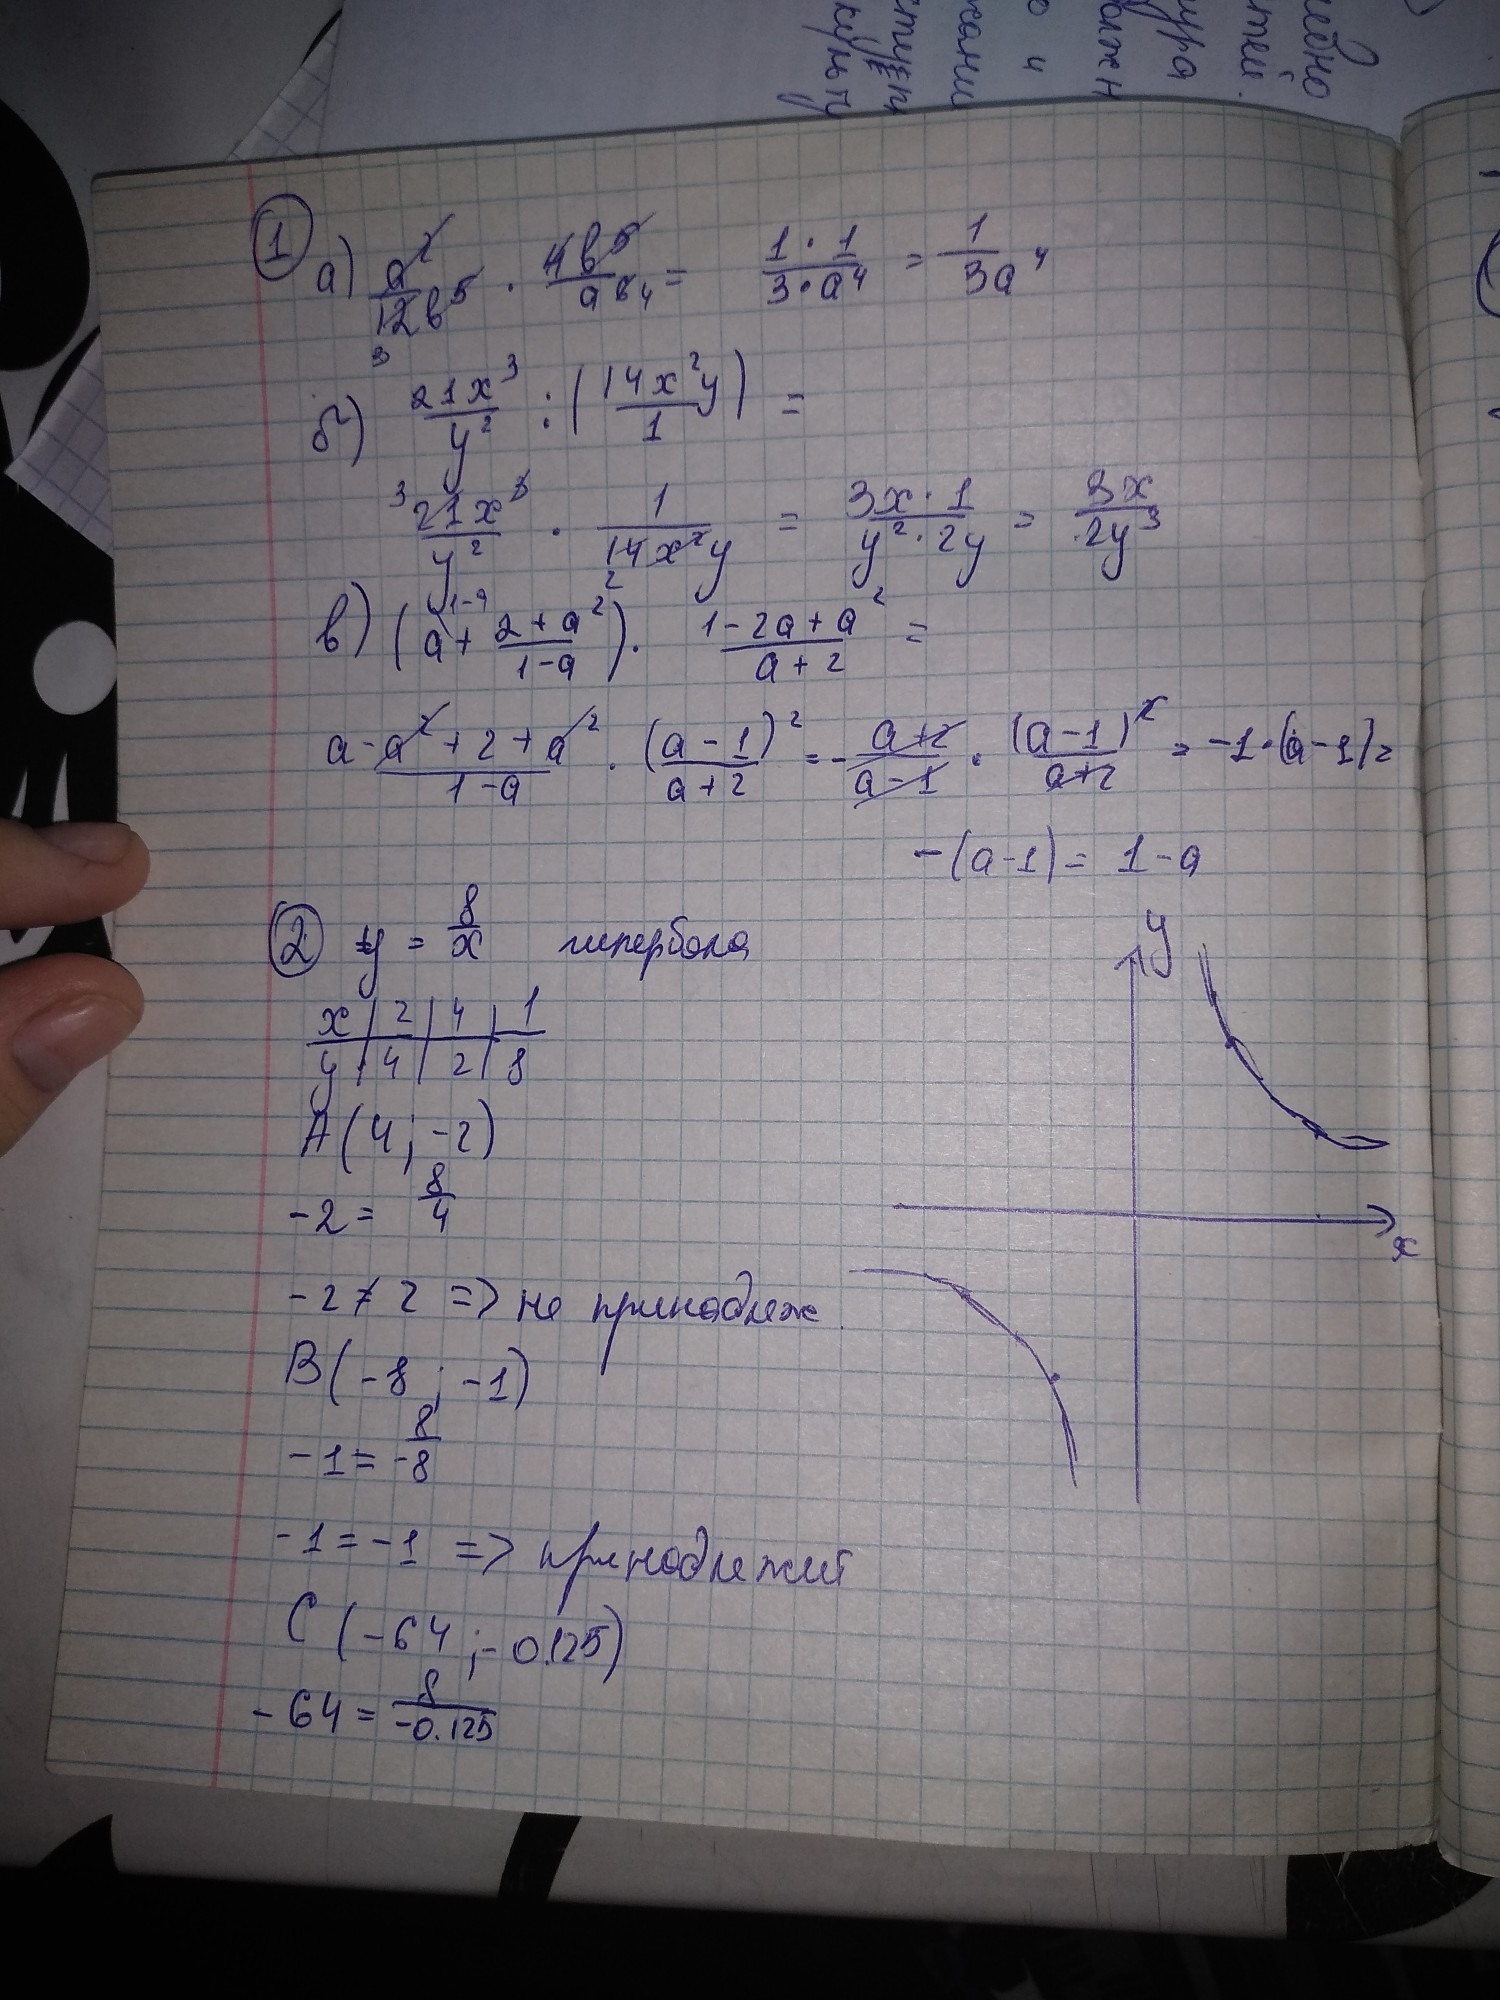 ебно
тей.
ура
олжн
о и
жани
ступен
1
а) a²/12b⁵ · 4b⁵/a⁶ ₄ = 1·1/3·a⁴ = 1/3a⁴
3
б) 21x³/y² : (14x²y/1) =
³21x³/y² · 1/14x²y = 3x·1/y²·2y = 3x/2y³
2
1-a
в) (a + 2+a²/1-a) · 1-2a+a²/a+2 =
a-a²+2+a²/1-a · (a-1)²/a+2 = - a+2/a-1 · (a-1)²/a+2 = -1·(a-1)=
-(a-1) = 1-a
2 y = 8/x гипербола
x | 2 | 4 | 1
y | 4 | 2 | 8
y
x
A(4; -2)
-2 = 8/4
-2 ≠ 2 => не принадлеж.
B(-8; -1)
-1 = 8/-8
-1 = -1 => принадлежит
C (-64; -0.125)
-64 = 8/-0.125